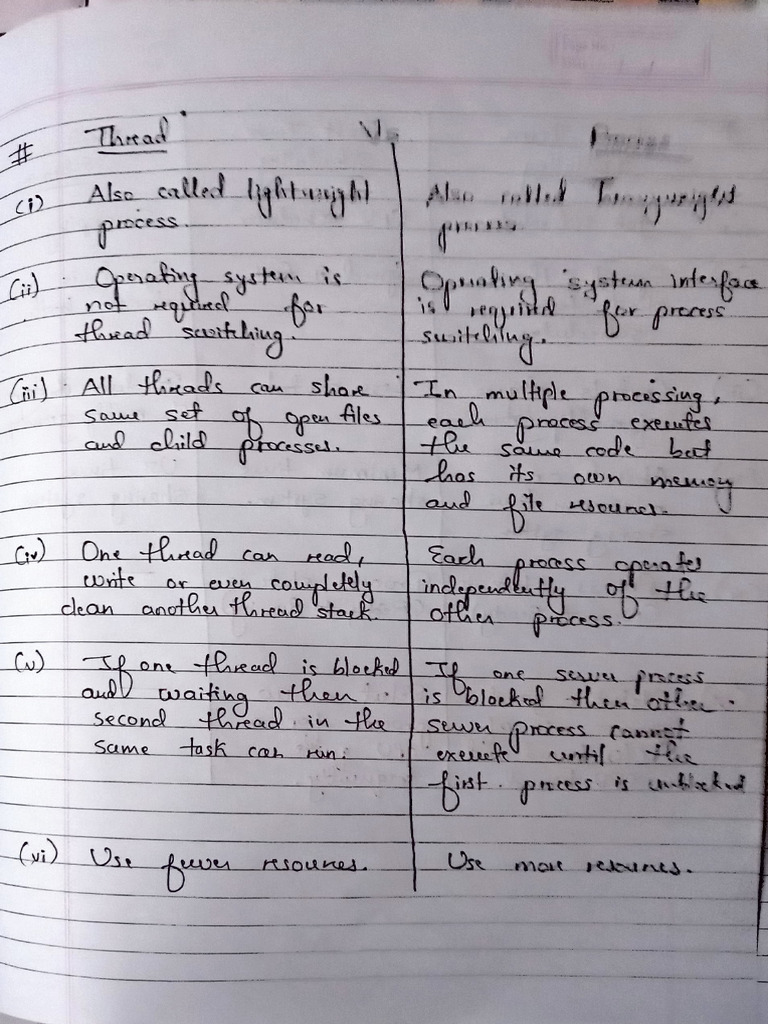 # Thread Vs Process
(i) Also called lightweight
process.
Also called
process
(ii) Operating system is
not required for
thread switching.
Operating system interface
is required for process
switching.
(iii) All threads can share
same set of open files
and child processes.
In multiple processing,
each process executes
the same code but
has its own memory
and file resources.
(iv) One thread can read,
write or even completely
clean another thread stack.
Each process operates
independently of the
other process.
(v) If one thread is blocked
and waiting then
second thread in the
same task can run.
If one server process
is blocked then other
server process cannot
execute until the
first process is unblocked
(vi) Use fewer resources.
Use more resources.